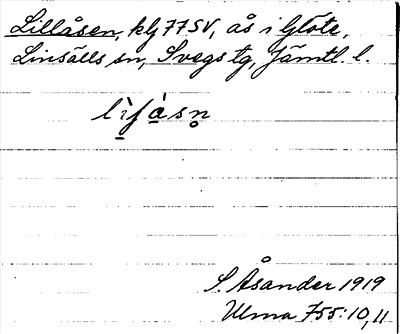 Lillåsen, klj 77 SV, ås i Glöte,
Linsälls sn, Svegs tg, Jämtl. l.
S. Åsander 1919
Ulma 755:10,11